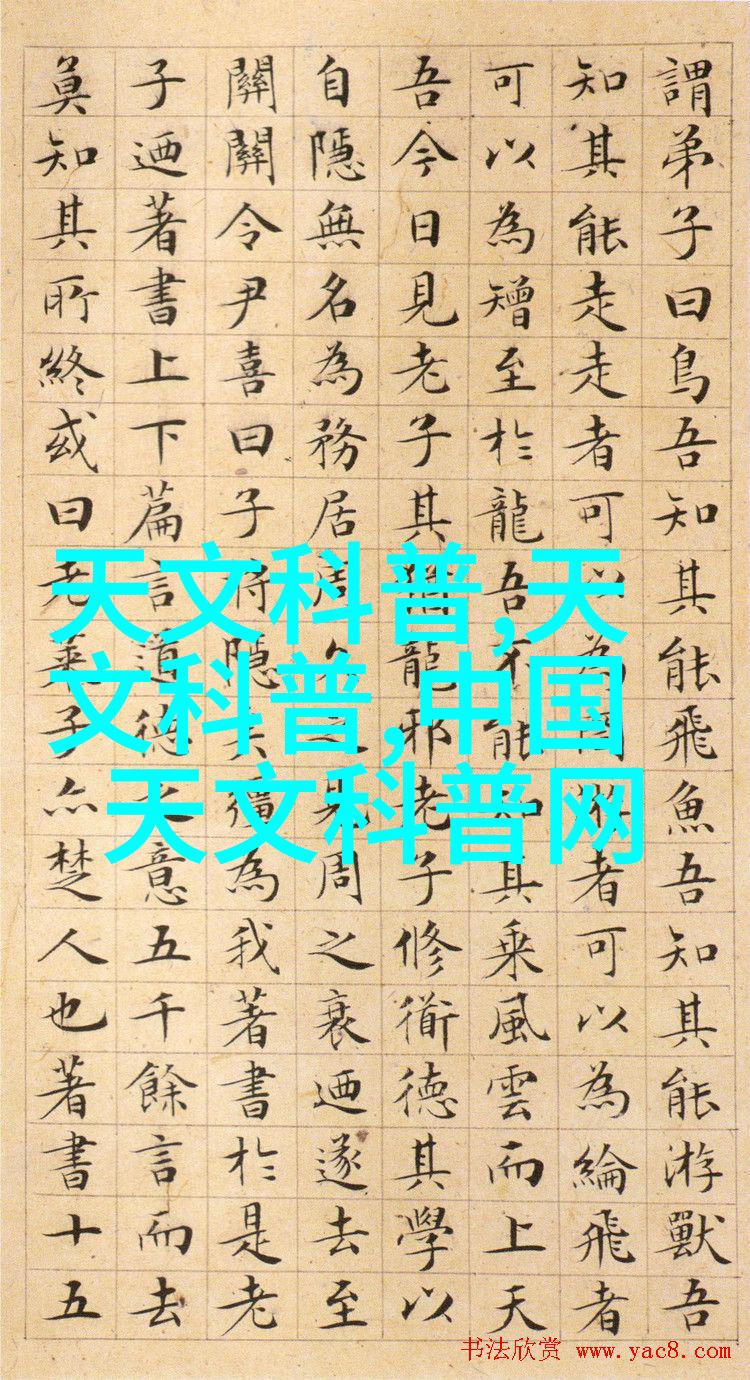 謂弟子曰鳥吾知其能飛魚吾知其能游獸吾
知其能走走者可以為罔游者可以為綸飛者
可以為矰至於龍吾不能知其乘風雲而上天
吾今日見老子其猶龍邪老子修衜德其學以
自隱無名為務居周久之見周之衰迺遂去至
關關令尹喜曰子將隱矣彊為我著書於是老
子迺著書上下篇言道德之意五千餘言而去
莫知其所終或曰老萊子亦楚人也著書十五
天文科普,天
文科普,中国
天文科普网
书法欣赏 www.yac8.com